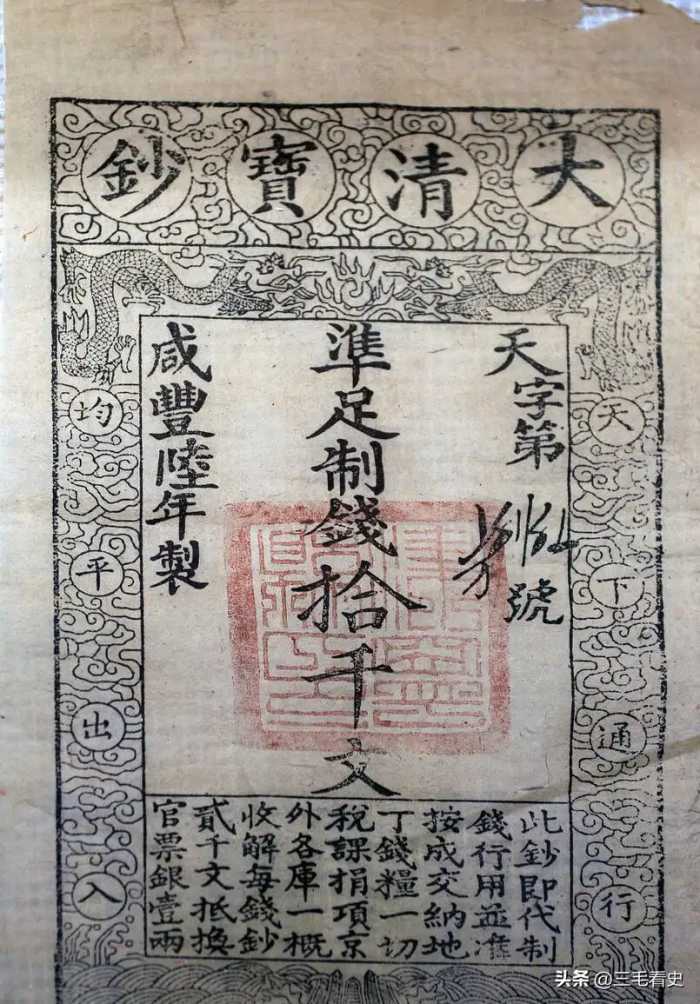 大清寶鈔
天字第
號
準足制錢拾千文
咸豐陸年製
天下通行
均平出入
此鈔即代制
錢行用並准
按成交納地
丁錢糧一切
稅課捐項京
外各庫一概
收解每錢鈔
貳千文抵換
官票銀壹兩
头条 @三毛看史